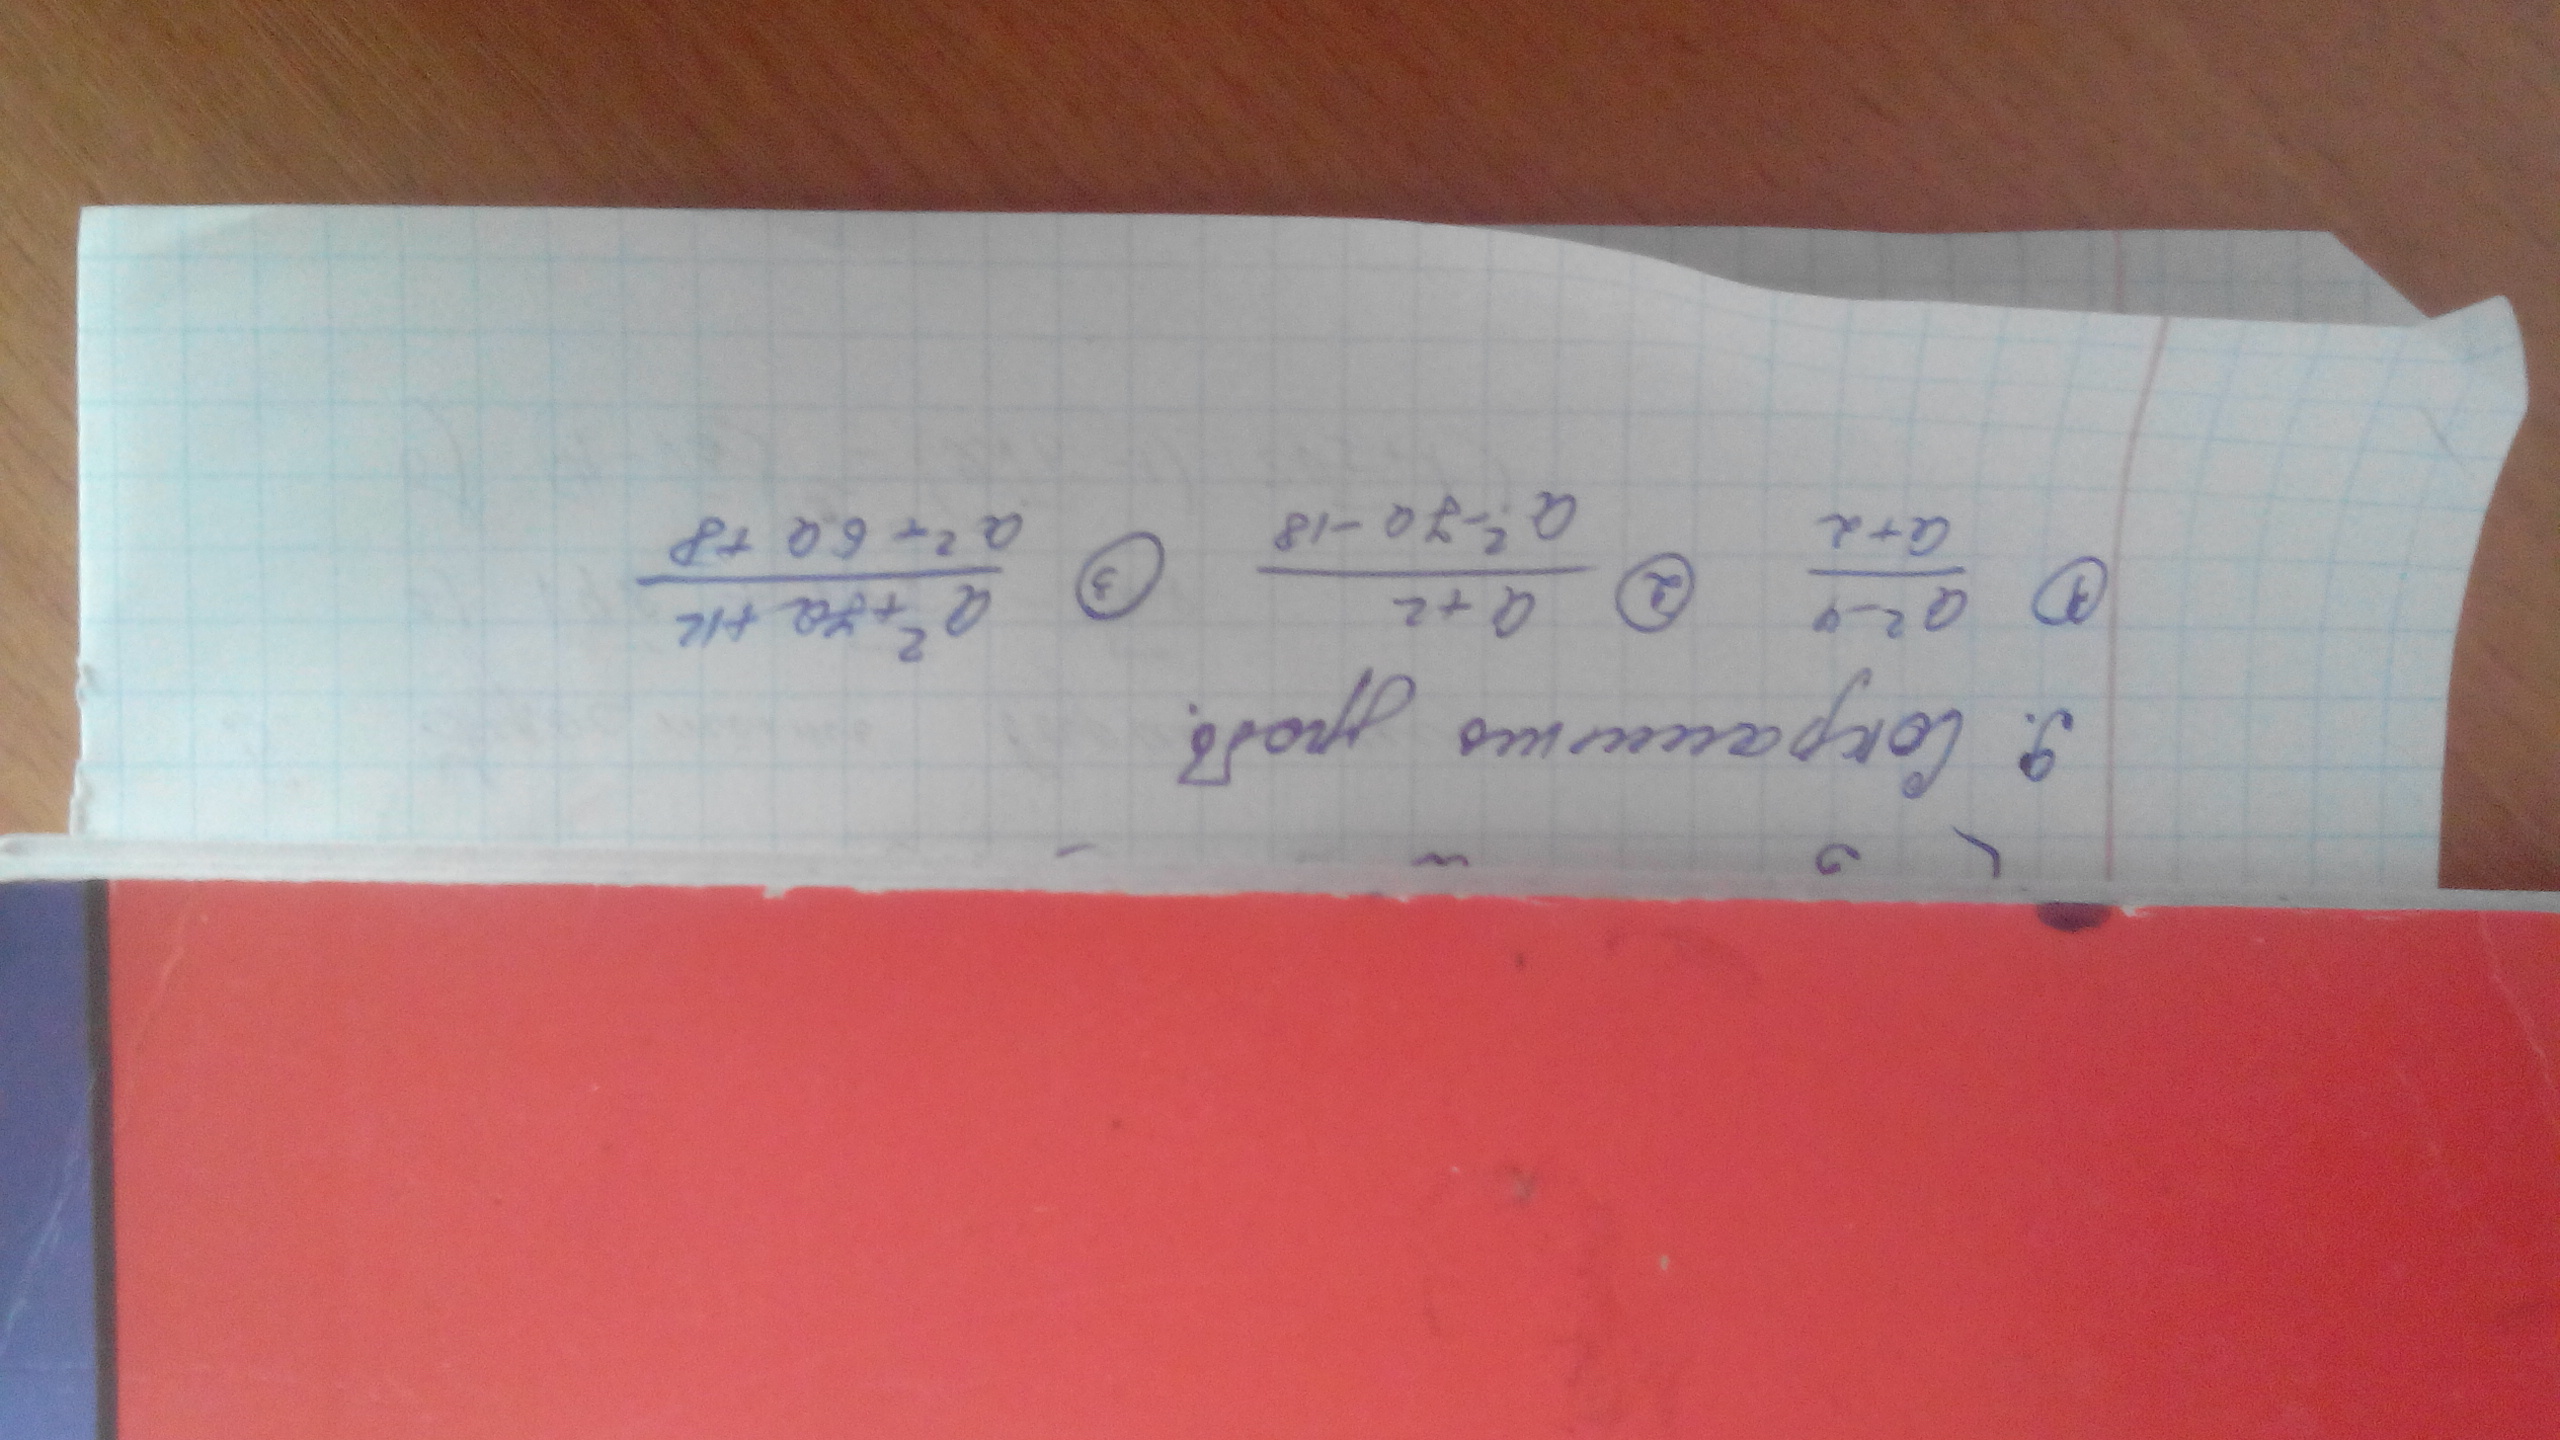 9. Сократить дробь.
① a²-4 / a+2 ② a+2 / a²-7a-18 ③ a²+7a+12 / a²+6a+8